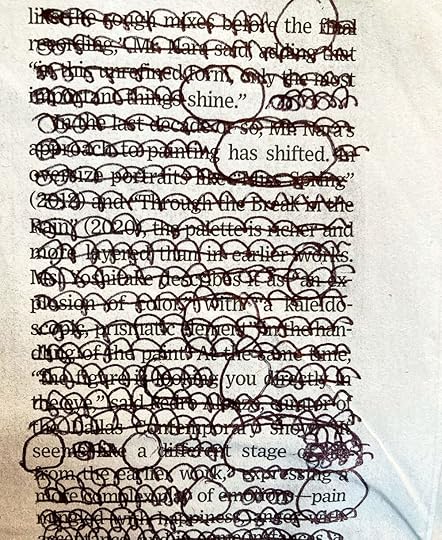 like the rough mixes before the final
recording," Mr. Nara said, adding that
"in this unrefined form, only the most
important things shine."
In the last decade or so, Mr. Nara's
approach to painting has shifted. In
oversize portraits like "Miss Spring"
(2012) and "Through the Break in the
Rain" (2020), the palette is richer and
more layered than in earlier works.
Ms. Yoshitake describes it as "an ex-
plosion of color," with "a kaleido-
scopic, prismatic element" in the han-
dling of the paint. At the same time,
"the figure is looking you directly in
the eye," said curator of
the Dallas Contemporary show. "It
seems like a different stage
from the earlier work," expressing a
more complex play of emotions — pain
mingled with happiness, anger with